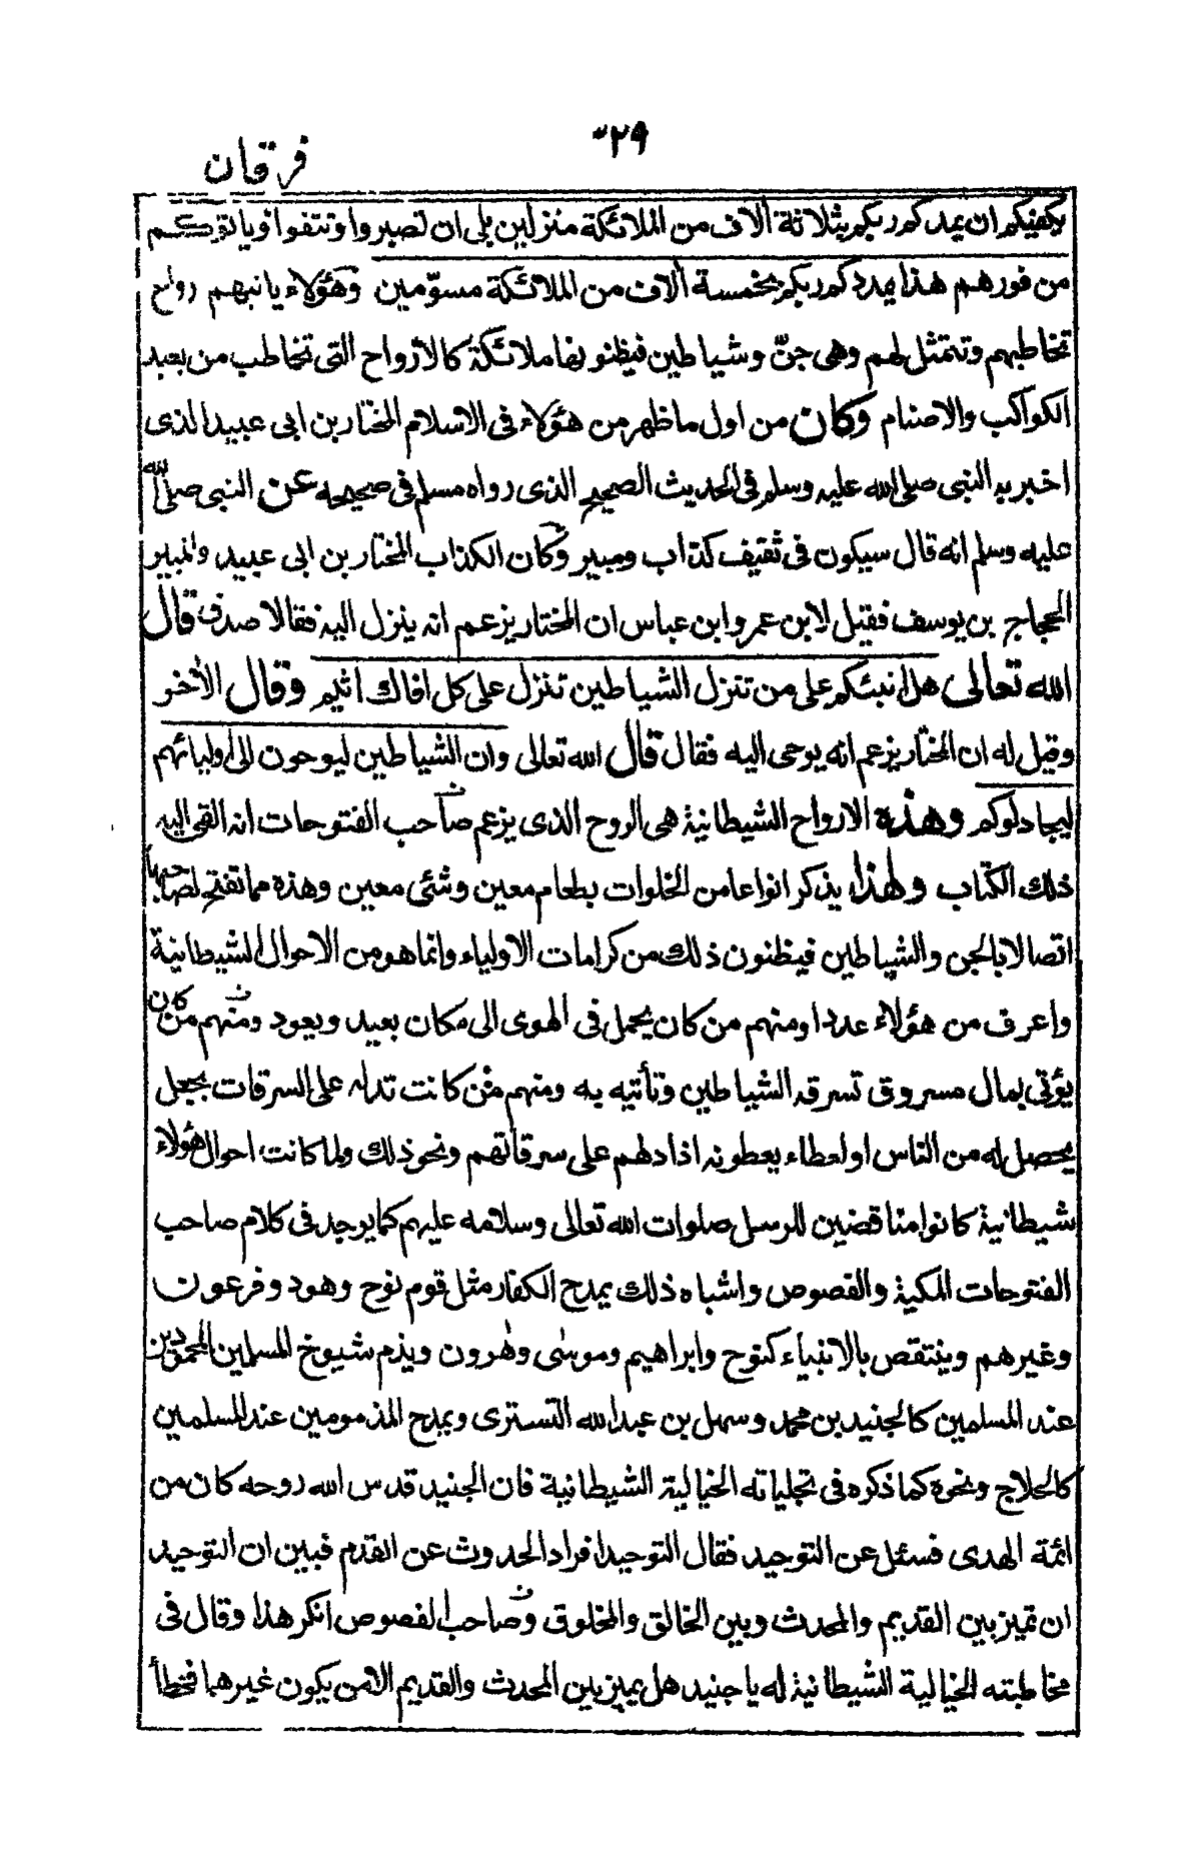 ۳۲۹
فرقان
يكفيكم ان يمدكم ربكم بثلاثة آلاف من الملائكة منزلين بلى ان تصبروا وتتقوا ويأتوكم
من فورهم هذا يمددكم ربكم بخمسة آلاف من الملائكة مسوّمين وهؤلاء يأتيهم رواح
تخاطبهم وتتمثل لهم وهى جنّ وشياطين فيظنونها ملائكة كالارواح التى تخاطب من يعبد
الكواكب والاصنام وكان من اول ما ظهر من هؤلاء فى الاسلام المختار بن ابى عبيد الذى
اخبر به النبى صلى الله عليه وسلم فى الحديث الصحيح الذى رواه مسلم فى صحيحه عن النبى صلى الله
عليه وسلم انه قال سيكون فى ثقيف كذاب ومبير وكان الكذاب المختار بن ابى عبيد والمبير
الحجاج بن يوسف فقيل لابن عمر وابن عباس ان المختار يزعم انه ينزل اليه فقالا صدق قال
الله تعالى هل انبئكم على من تنزل الشياطين تنزل على كل افاك اثيم وقال الأخر
وقيل له ان المختار يزعم انه يوحى اليه فقال قال الله تعالى وان الشياطين ليوحون الى اوليائهم
ليجادلوكم وهذه الارواح الشيطانية هى الروح الذى يزعم صاحب الفتوحات انه القى اليه
ذلك الكتاب ولهذا يذكر انواعا من الخلوات بطعام معين وشئى معين وهذه مما تفتح لصاحبها
اتصالا بالجن والشياطين فيظنون ذلك من كرامات الاولياء وانما هو من الاحوال الشيطانية
واعرف من هؤلاء عددا ومنهم من كان يحمل فى الهوى الى مكان بعيد ويعود ومنهم من كان
يؤتى بمال مسروق تسرقه الشياطين وتأتيه به ومنهم من كانت تدله على السرقات بجعل
يحصل له من الناس او لعطاء يعطونه اذا دلهم على سرقاتهم ونحو ذلك ولما كانت احوال هؤلاء
شيطانية كانوا مناقضين للرسل صلوات الله تعالى وسلامه عليهم كما يوجد فى كلام صاحب
الفتوحات المكية والفصوص واشباه ذلك يمدح الكفار مثل قوم نوح وهود وفرعون
وغيرهم وينتقص بالانبياء كنوح وابراهيم وموسى وهرون ويذم شيوخ المسلمين المحمودين
عند المسلمين كالجنيد بن محمد وسهل بن عبد الله التسترى ويمدح المذمومين عند المسلمين
كالحلاج ونحوه كما ذكره فى تجلياته الخيالية الشيطانية فان الجنيد قدس الله روحه كان من
ائمة الهدى فسئل عن التوحيد فقال التوحيد افراد الحدوث عن القدم فبين ان التوحيد
ان تميز بين القديم والمحدث وبين الخالق والمخلوق وصاحب الفصوص انكر هذا وقال فى
مخاطبته الخيالية الشيطانية له يا جنيد هل يميز بين المحدث والقديم الا من يكون غيرهما فخطأ